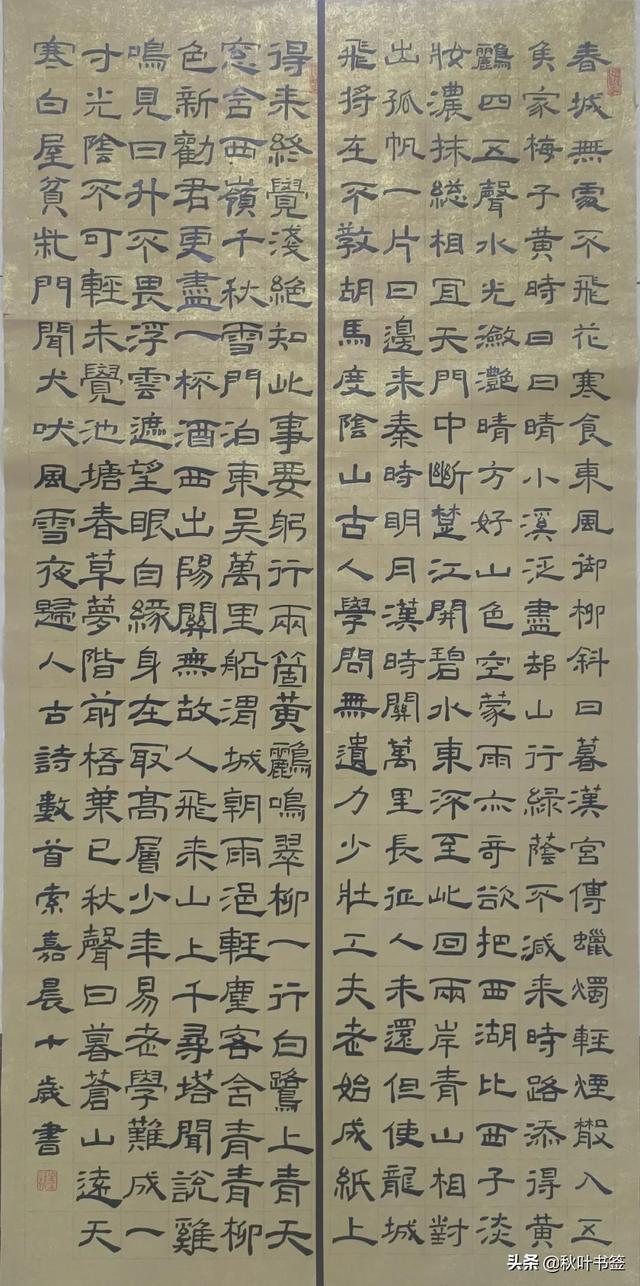 春城無處不飛花寒食東風御柳斜日暮漢宮傳蠟燭輕煙散入五
侯家梅子黃時日日晴小溪泛盡却山行綠蔭不減来時路添得黃
鸝四五聲水光瀲灩晴方好山色空蒙雨亦奇欲把西湖比西子淡
妝濃抹総相宜天門中斷楚江開碧水東流至此回兩岸青山相對
出孤帆一片日邊来秦時明月漢時關萬里長征人未還但使龍城
飛將在不敎胡馬度陰山古人學問無遺力少壯工夫老始成紙上
得来終覺淺絕知此事要躬行兩箇黃鸝鳴翠柳一行白鷺上青天
窓含西嶺千秋雪門泊東吳萬里船渭城朝雨浥輕塵客舍青青柳
色新勸君更盡一杯酒西出陽關無故人飛来山上千尋塔聞說雞
鳴見日升不畏浮雲遮望眼自緣身在冣高層少年易老學難成一
寸光陰不可輕未覺池塘春草夢階前梧葉已秋聲日暮蒼山遠天
寒白屋貧柴門聞犬吠風雪夜歸人古詩數首索嘉晨十歲書
头条 @秋叶书签